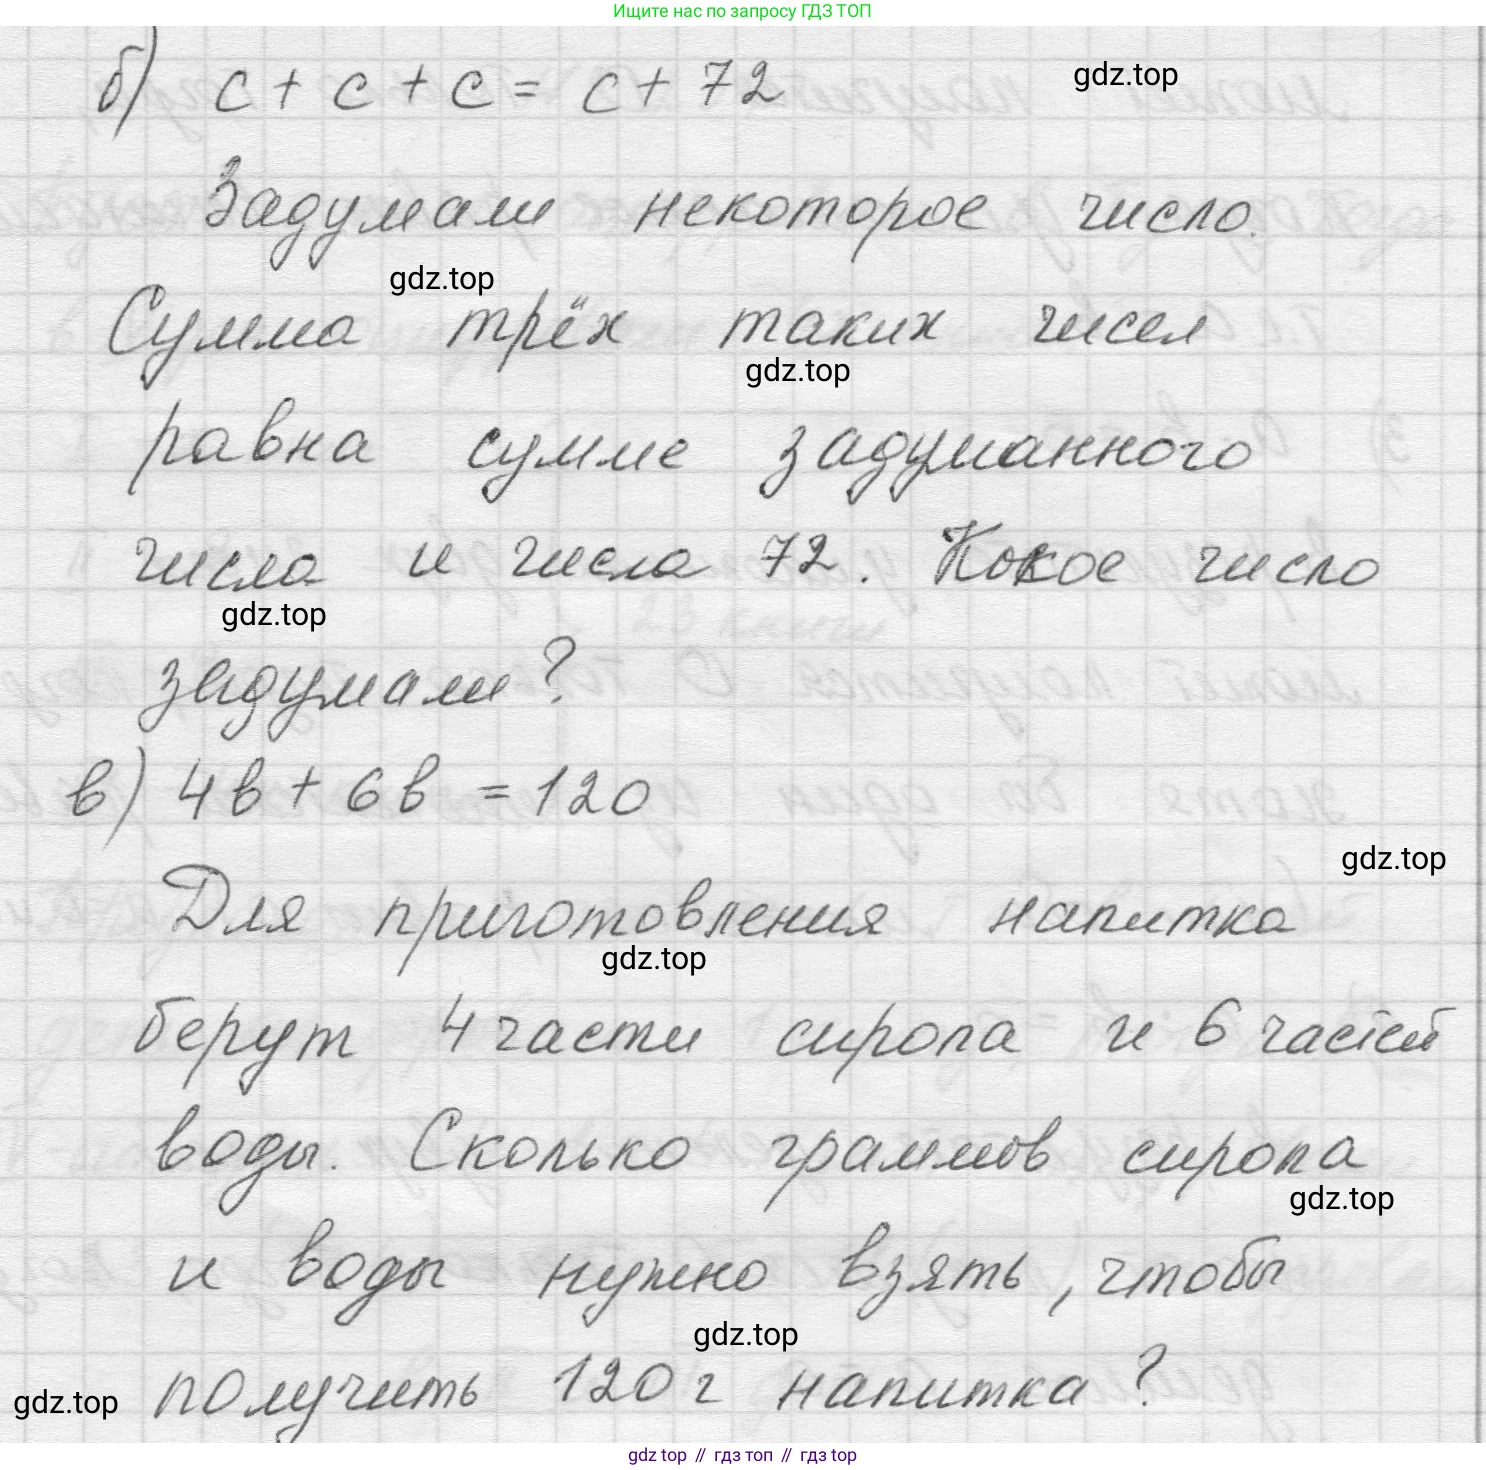 Ищите нас по запросу ГДЗ ТОП
б) c + c + c = c + 72
gdz.top
Задумали некоторое число.
gdz.top
Сумма трёх таких чисел
gdz.top
равна сумме задуманного
числа и числа 72. Какое число
gdz.top
задумали?
в) 4в + 6в = 120
gdz.top
Для приготовления напитка
gdz.top
берут 4 части сиропа и 6 частей
воды. Сколько граммов сиропа
gdz.top
и воды нужно взять, чтобы
gdz.top
получить 120 г напитка?
gdz.top
gdz top // гдз топ // gdz top